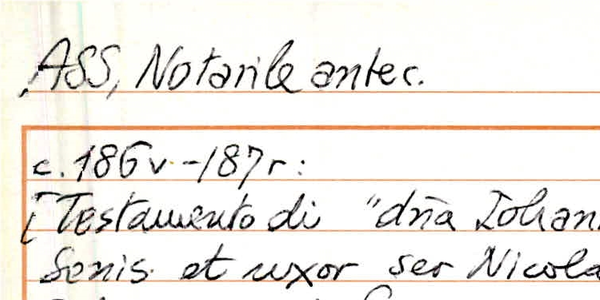 ASS, Notarile antec.
c. 186v-187r:
[Testamento di "dña Iohan
Senis et uxor ser Nicola